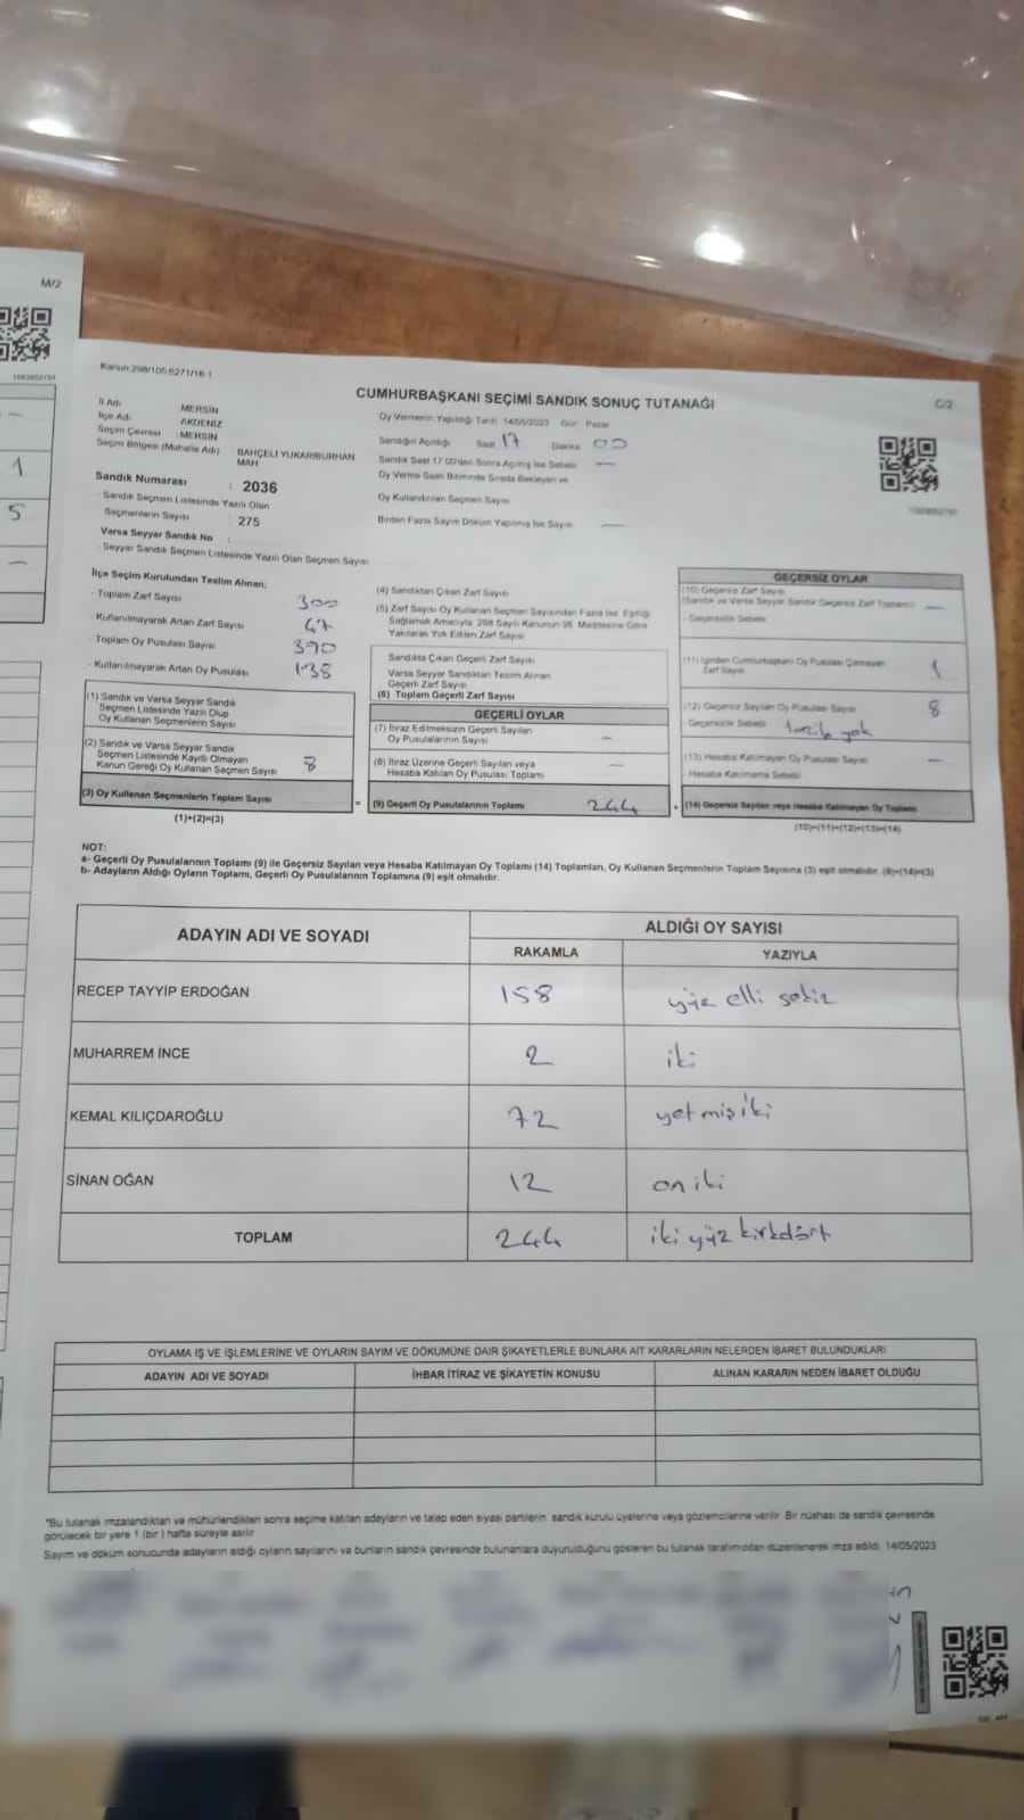 M/2
1
5
Kanun:298/105-6271/16-1
CUMHURBAŞKANI SEÇİMİ SANDIK SONUÇ TUTANAĞI
C/2
İl Adı MERSİN
İlçe Adı AKDENİZ
Seçim Çevresi : MERSİN
Seçim Bölgesi (Muhalle Adı) BAHÇELİ YUKARIBURHAN MAH
Sandık Numarası : 2036
Sandık Seçmen Listesinde Yazılı Olan
Seçmenlerin Sayısı 275
Varsa Seyyar Sandık No :
Seyyar Sandık Seçmen Listesinde Yazılı Olan Seçmen Sayısı
Oy Vermenin Yapıldığı Tarih 14/05/2023 Gün Pazar
Sandığın Açıldığı Saat 17 Dakika 00
Sandık Saat 17:00'den Sonra Açılmış İse Sebebi —
Oy Verme Saati Bitiminde Sırada Bekleyen ve
Oy Kullandırılan Seçmen Sayısı
Birden Fazla Sayım Döküm Yapılmış İse Sayısı —
İlçe Seçim Kurulundan Teslim Alınan;
Toplam Zarf Sayısı 300
Kullanılmayarak Artan Zarf Sayısı 47
Toplam Oy Pusulası Sayısı 390
Kullanılmayarak Artan Oy Pusulası 138
(1) Sandık ve Varsa Seyyar Sandık
Seçmen Listesinde Yazılı Olup
Oy Kullanan Seçmenlerin Sayısı
(2) Sandık ve Varsa Seyyar Sandık
Seçmen Listesinde Kayıtlı Olmayan
Kanun Gereği Oy Kullanan Seçmen Sayısı 8
(3) Oy Kullanan Seçmenlerin Toplam Sayısı
(1)+(2)=(3)
(4) Sandıktan Çıkan Zarf Sayısı
(5) Zarf Sayısı Oy Kullanan Seçmen Sayısından Fazla İse, Eşitliği
Sağlamak Amacıyla, 298 Sayılı Kanunun 98. Maddesine Göre
Yakılarak Yok Edilen Zarf Sayısı
Sandıkta Çıkan Geçerli Zarf Sayısı
Varsa Seyyar Sandıktan Teslim Alınan
Geçerli Zarf Sayısı
(6) Toplam Geçerli Zarf Sayısı
GEÇERLİ OYLAR
(7) İtiraz Edilmeksizin Geçerli Sayılan
Oy Pusulalarının Sayısı —
(8) İtiraz Üzerine Geçerli Sayılan veya
Hesaba Katılan Oy Pusulası Toplamı —
= (9) Geçerli Oy Pusulalarının Toplamı 244
GEÇERSİZ OYLAR
(10) Geçersiz Zarf Sayısı
(Sandık ve Varsa Seyyar Sandık Geçersiz Zarf Toplamı) —
Geçersizlik Sebebi
(11) İçinden Cumhurbaşkanı Oy Pusulası Çıkmayan
Zarf Sayısı 1
(12) Geçersiz Sayılan Oy Pusulası Sayısı 8
Geçersizlik Sebebi yok
(13) Hesaba Katılmayan Oy Pusulası Sayısı —
Hesaba Katılmama Sebebi
+ (14) Geçersiz Sayılan veya Hesaba Katılmayan Oy Toplamı
(10)+(11)+(12)+(13)=(14)
NOT:
a- Geçerli Oy Pusulalarının Toplamı (9) ile Geçersiz Sayılan veya Hesaba Katılmayan Oy Toplamı (14) Toplamları, Oy Kullanan Seçmenlerin Toplam Sayısına (3) eşit olmalıdır. (9)+(14)=(3)
b- Adayların Aldığı Oyların Toplamı, Geçerli Oy Pusulalarının Toplamına (9) eşit olmalıdır.
ADAYIN ADI VE SOYADI
ALDIĞI OY SAYISI
RAKAMLA YAZIYLA
RECEP TAYYİP ERDOĞAN 158 yüz elli sekiz
MUHARREM İNCE 2 iki
KEMAL KILIÇDAROĞLU 72 yetmiş iki
SİNAN OĞAN 12 on iki
TOPLAM 244 iki yüz kırkdört
OYLAMA İŞ VE İŞLEMLERİNE VE OYLARIN SAYIM VE DÖKÜMÜNE DAİR ŞİKAYETLERLE BUNLARA AİT KARARLARIN NELERDEN İBARET BULUNDUKLARI
ADAYIN ADI VE SOYADI İHBAR İTİRAZ VE ŞİKAYETİN KONUSU ALINAN KARARIN NEDEN İBARET OLDUĞU
"Bu tutanak imzalandıktan ve mühürlendikten sonra seçime katılan adayların ve talep eden siyasi partilerin, sandık kurulu üyelerine veya gözlemcilerine verilir. Bir nüshası da sandık çevresinde
görülecek bir yere 1 (bir) hafta süreyle asılır
Sayım ve döküm sonucunda adayların aldığı oyların sayılarını ve bunların sandık çevresinde bulunanlara duyurulduğunu gösteren bu tutanak tarafımızdan düzenlenerek imza edildi. 14/05/2023